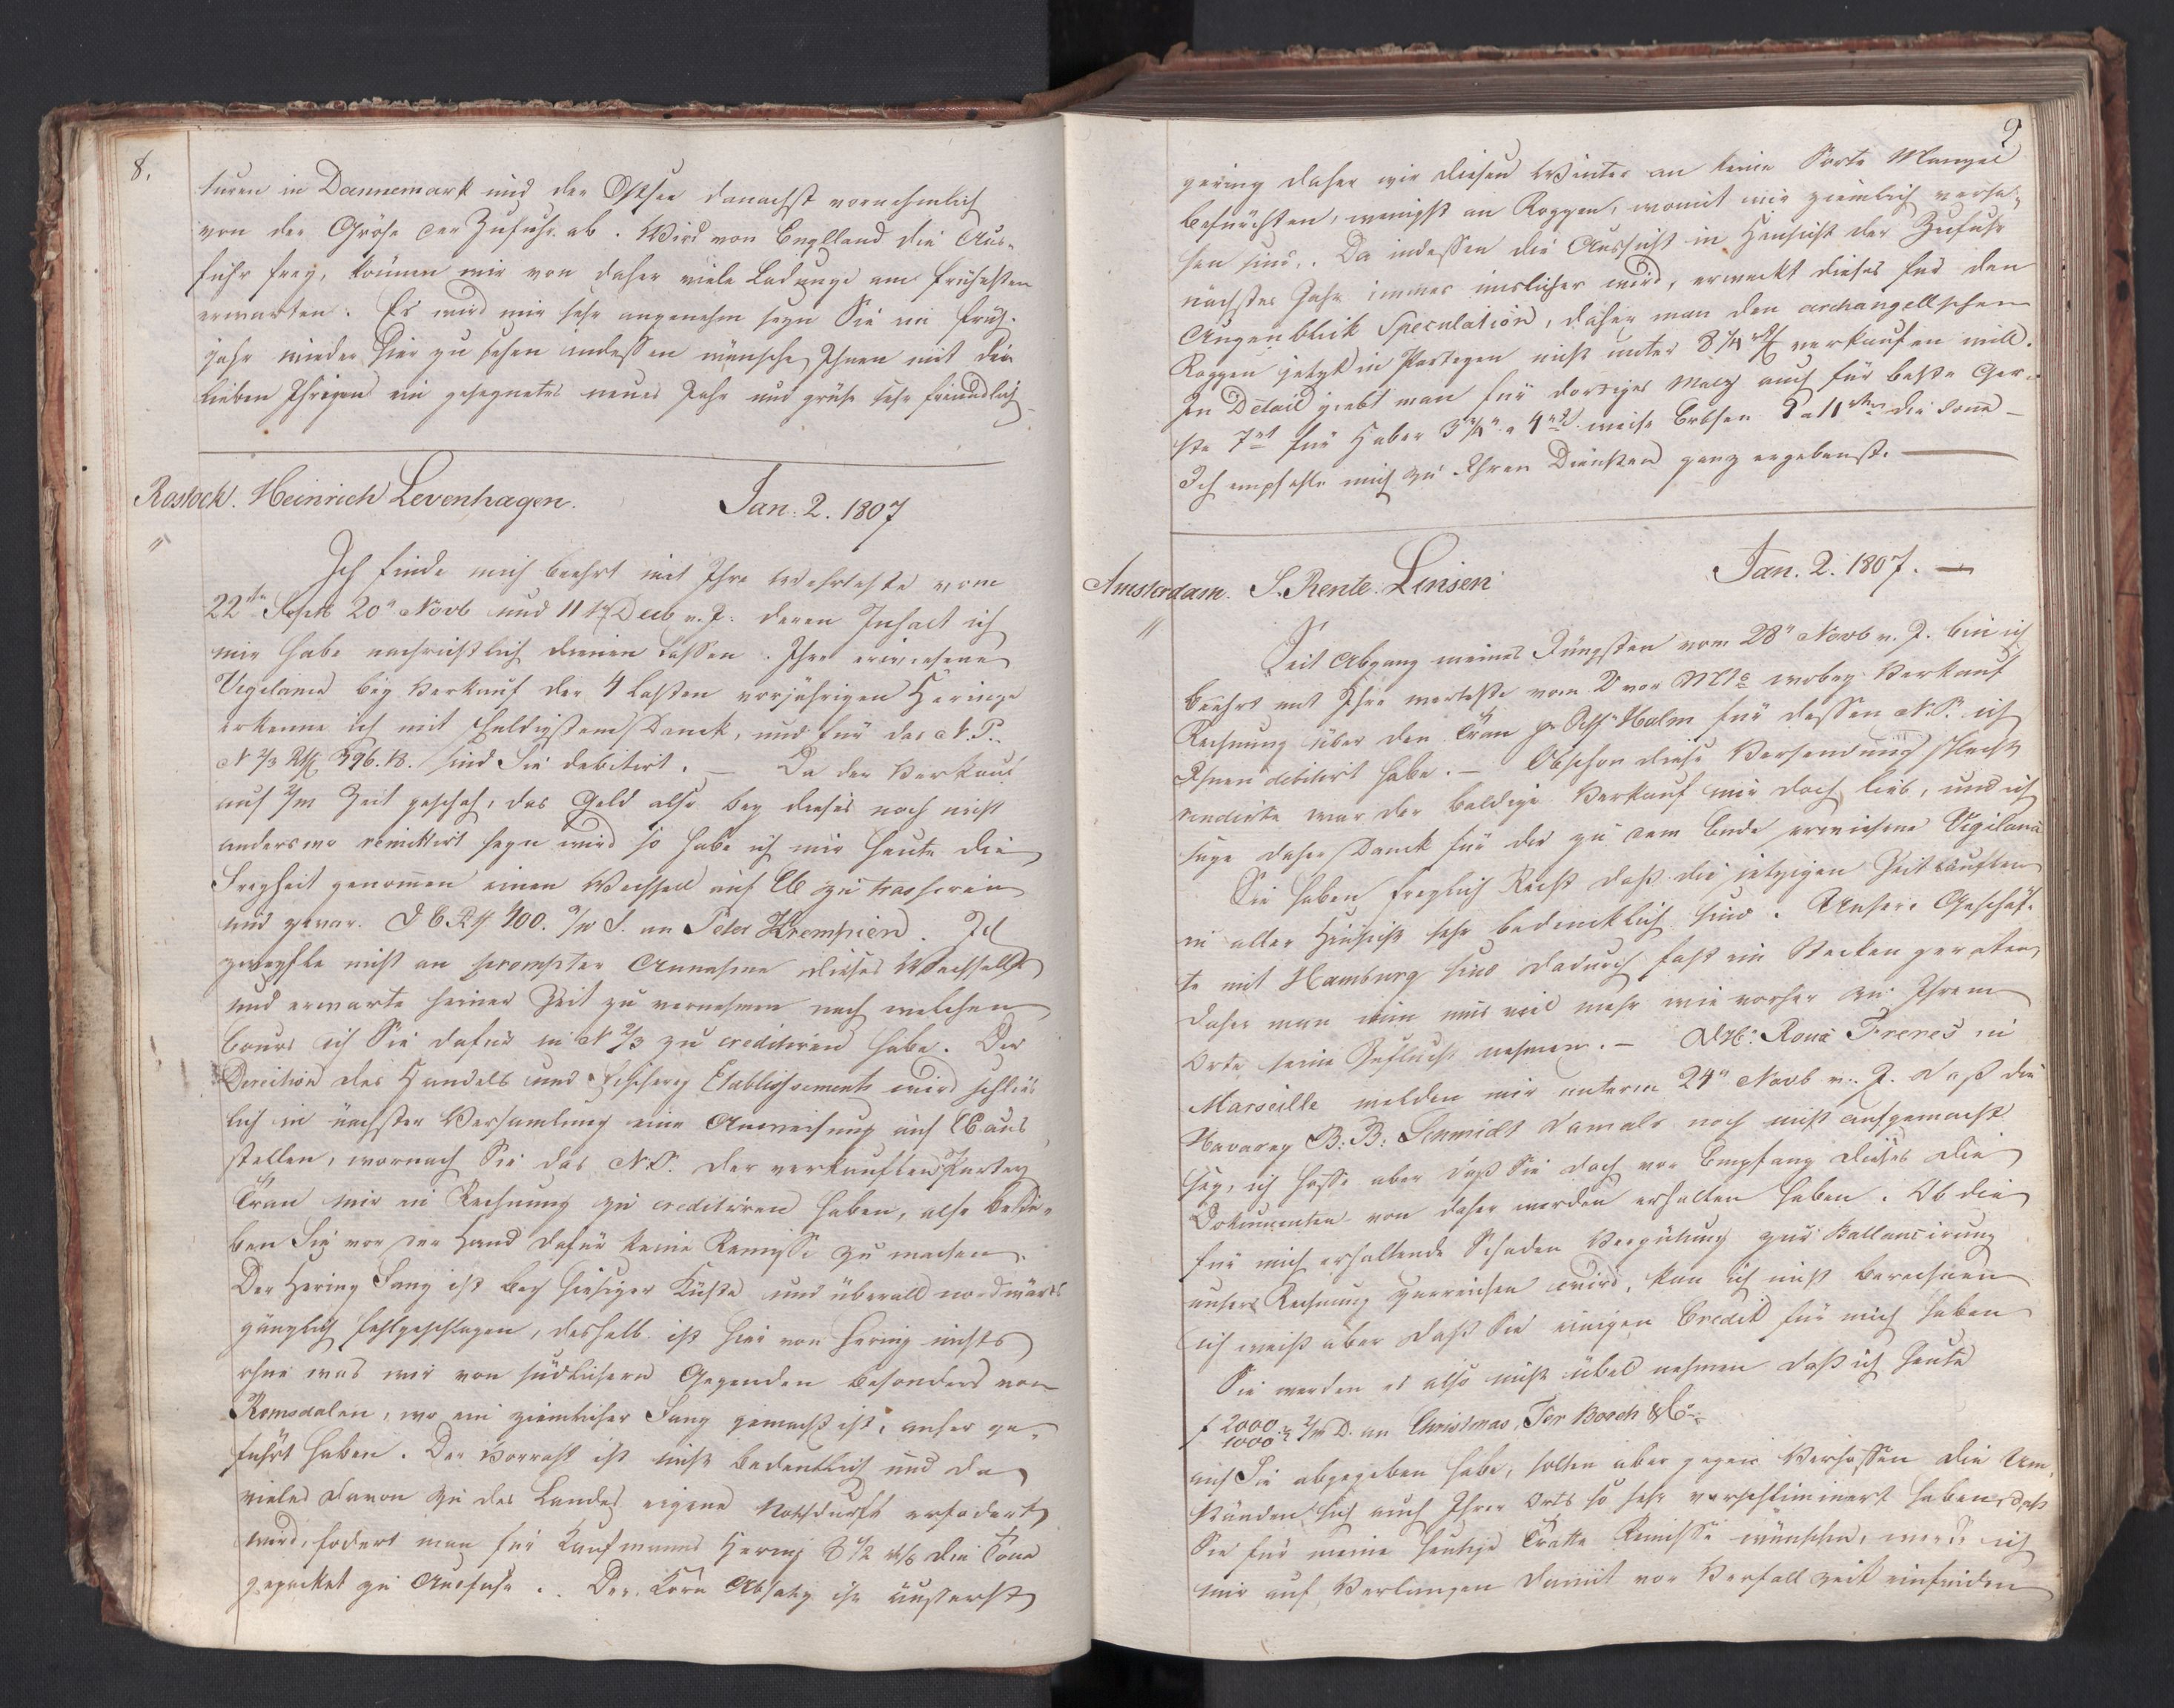 8.
turen in Dannemark und der Ostsee danachst vornehmlich
von der Gröse der Zufuhr ab. Wird von Englland die Aus-
fuhr frey, können wir von daher viele Ladunge am frühesten
erwarten. Es wird mir sehr angenehm seyn Sie im Früh-
jahr wieder hier zu sehen indessen wünsche Ihnen mit die
lieben Ihrigen ein gesegnetes neues Jahr und grüse sehr freundlich
Rostock. Heinrich Levenhagen. Jan. 2. 1807
"
Ich finde mich beehrt mit Ihre Wehrteste vom
22ten Sept 20n Novb und 11 Decb v. J. deren Inhalt ich
mir habe nachrichtlich dienen lassen. Ihre erwiesene
Vigilance bey Verkauf der 4 Lasten vorjährigen Heringe
erkenne ich mit schuldigstem Danck, und für das N. P.
N 2/3 396. 18. sind Sie debitirt. — Da der Verkauf
auf 2/m Zeit geschah, das Geld also bey dieses noch nicht
anderswo remittirt seyn wird so habe ich mir heute die
Freyheit genomen einen Wechsell auf Eb zu trassiren
und zwar. 400. an Peter Krempien. Ich
zweyfle nicht an prompter Annahme dieses Wechsells
und erwarte seiner Zeit zu vernehmen nach welchen
Cours ich Sie dafür in N 2/3 zu creditiren habe. Die
Direction des Handels und Fischerey Etablissements wird schlies-
lich in nächster Versamlung eine Anweisung auf Eb aus
stellen, wornach Sie das N. P. der verkauften Partey
Tran mir in Rechnung zu creditiren haben, also belie-
ben Sie vor der Hand dafür keine Remisse zu machen.
Der Hering Fang ist bey hiesiger Küste und überall nordwärts
gänzlich fehlgeschlagen, deshalb ist hier von Hering nichts
ohne was wir von südlichern Gegenden besonders von
Romsdalen, wo ein ziemlicher Fang gemacht ist, anher ge-
führt haben. Der Vorraht ist nicht bedeutlich und da
vieles davon zu des Landes eigene Nothdurft erfodert
wird, fodert man für Kaufmanns Hering 8 1/2 die Tone
gepacket zu Ausfuhr.. Der Korn Absatz ist äusserst
9
gering daher wir diesen Winter an keine Sorte Mangel
befürchten, wenigst an Roggen, womit wir ziemlich verse-
hen sind. Da indessen die Aussicht in Hinsicht der Zufuhr
nächstes Jahr immer mislicher wird, erweckt dieses für den
Augenblick Speculation, daher man den archangellschen
Roggen jetzt in Parteyen nicht unter 8 1/4 verkaufen will.
In Detail giebt man für dortiges Malz auch für beste Ger-
ste 7 für Haber 3 3/4 a 4 weise Erbsen 9 a 11 die Tone —
Ich empfehle mich zu Ihren Diensten ganz ergebenst. —
Amsterdam. S. Rente Linsen Jan. 2. 1807. —
"
Seit Abgang meines Jüngsten vom 28n Novb v. J. bin ich
beehrt mit Ihre werteste vom 2 vor wobey Verkauf
Rechnung über den Tran pr Schf Holm für dessen N. P. ich
Ihnen debitirt habe. — Obschon diese Versendung schlecht
rendirte war der baldige Verkauf mir doch lieb, und ich
sage daher Danck für die zu dem Ende erwiesene Vigilance
Sie haben freylich Recht daß die jetzigen Zeitläuften
in aller Hinsicht sehr bedencklich sind. Unsere Geschäf-
te mit Hamburg sind dadurch fast in Stecken geraten
daher man nun viel mehr wie vorher zu Ihrem
Orte seine Zuflucht nehmen. — Roux Freres in
Marseille melden mir unterm 24n Novb v. J. daß die
Havarey B: B: Schmidt damals noch nicht aufgemacht
sey, ich hoffe aber daß Sie doch vor Empfang dieses die
Dokumenten von daher werden erhalten haben. Ob die
für mich erhaltende Schaden Vergütung zur Ballancirung
unsers Rechnung zureichen wird, kan ich nicht berechnen
ich weiß aber daß Sie einigen Credit für mich haben
Sie werden es also nicht übel nehmen daß ich heute
f 2000
1000 2/m D. an Christmas, Ter Bosch & Co
auf Sie abgegeben habe, solten aber gegen Verhoffen die Um-
ständen sich auch Ihrer Orts so sehr verschlimmert haben daß
Sie für meine heutige Tratte Remisse wünschen, werde ich
mir auf Verlangen damit vor Verfall zeit einfinden